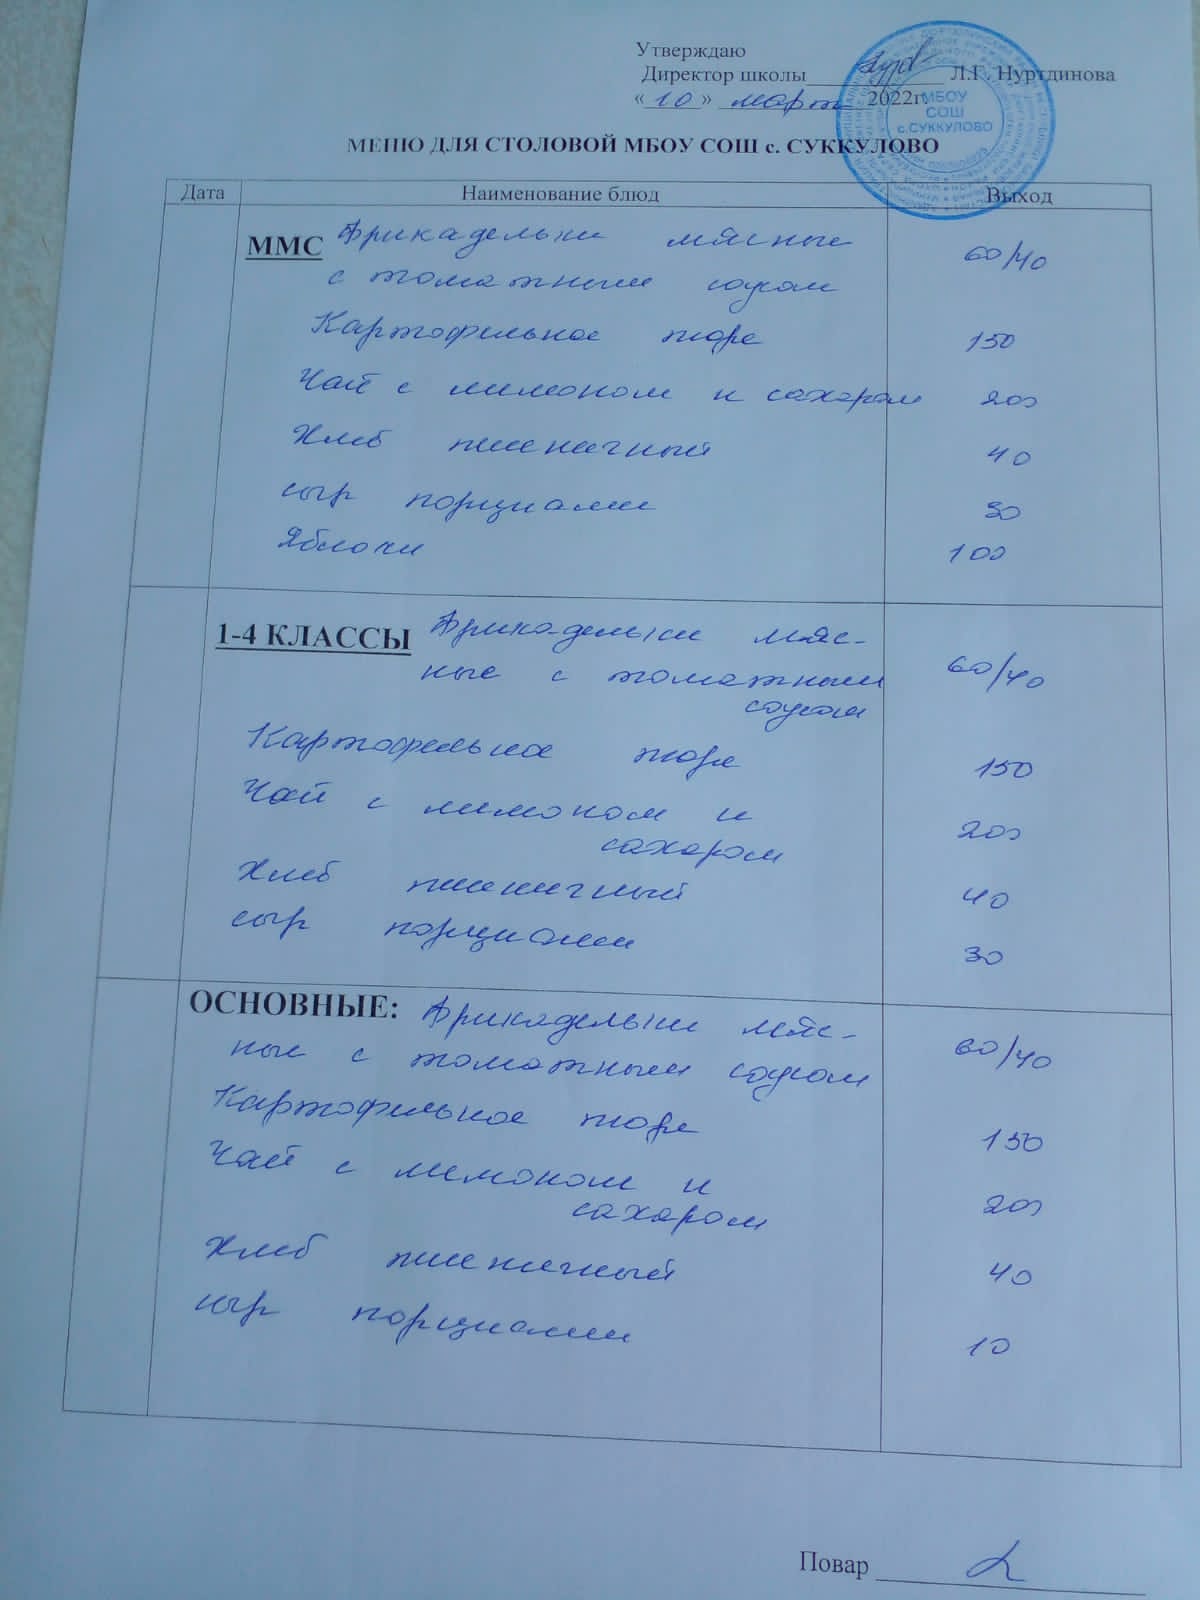 Утверждаю
Директор школы Л.Г. Нуртдинова
«10» март 2022г.
МБОУ
СОШ
с.СУККУЛОВО
МЕНЮ ДЛЯ СТОЛОВОЙ МБОУ СОШ с. СУККУЛОВО
Дата Наименование блюд Выход
ММС Фрикадельки мясные 60/40
с томатным соусом
Картофельное пюре 150
Чай с лимоном и сахаром 200
Хлеб пшеничный 40
сыр порциами 30
Яблоки 100
1-4 КЛАССЫ Фрикадельки мяс-
ные с томатным 60/40
соусом
Картофельное пюре 150
Чай с лимоном и 200
сахаром
Хлеб пшеничный 40
сыр порциами 30
ОСНОВНЫЕ: Фрикадельки мяс-
ные с томатным соусом 60/40
Картофельное пюре 150
Чай с лимоном и 200
сахаром
Хлеб пшеничный 40
сыр порциами 10
Повар